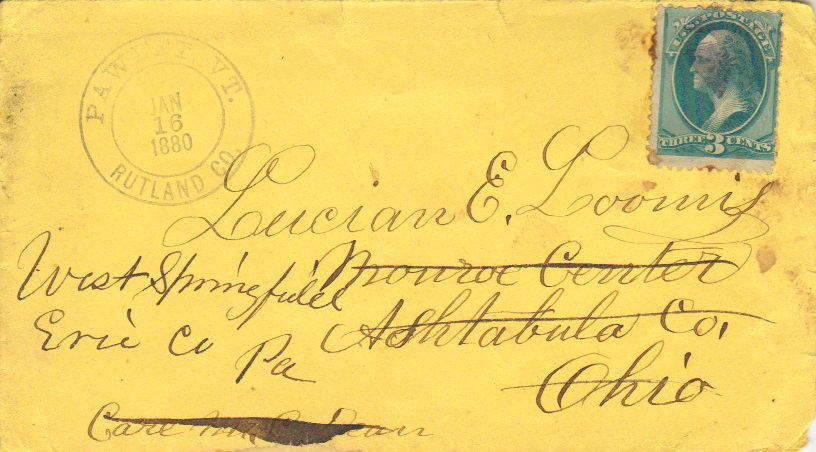 PAWLET, VT.
JAN
16
1880
RUTLAND CO.
U.S. POSTAGE
THREE 3 CENTS
Lucian E. Loomis
Monroe Center
Ashtabula Co,
Ohio
West Springfield
Erie Co
Pa
Care Dean